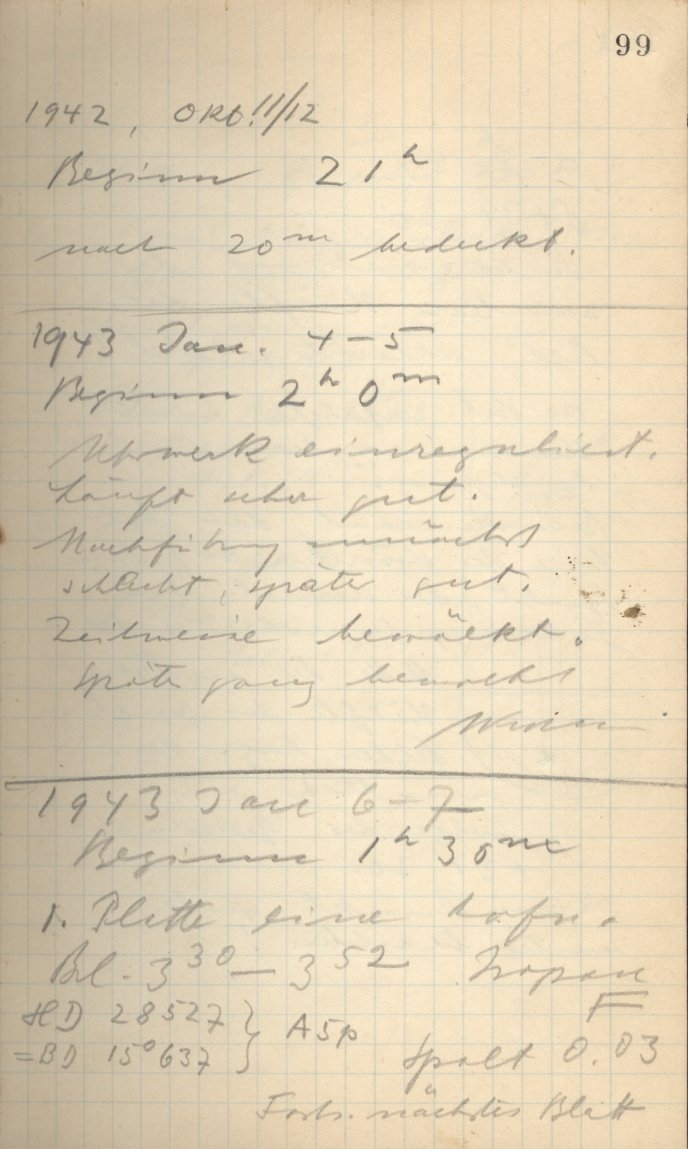 99
1942, Okt. 11/12
Beginn 21h
nach 20m bedeckt.
1943 Jan. 4-5
Beginn 2h 0m
Uhrwerk einreguliert.
Läuft sehr gut.
Nachführung zunächst
schlecht, später gut.
Zeitweise bewölkt.
Später ganz bewölkt
1943 Jan 6-7
Beginn 1h 30m
1. Platte eine Aufn.
Bel. 3 30 - 3 52 Isopan
F
HD 28527 } A5p
=BD 15°637
Spalt 0.03
Forts. nächstes Blatt